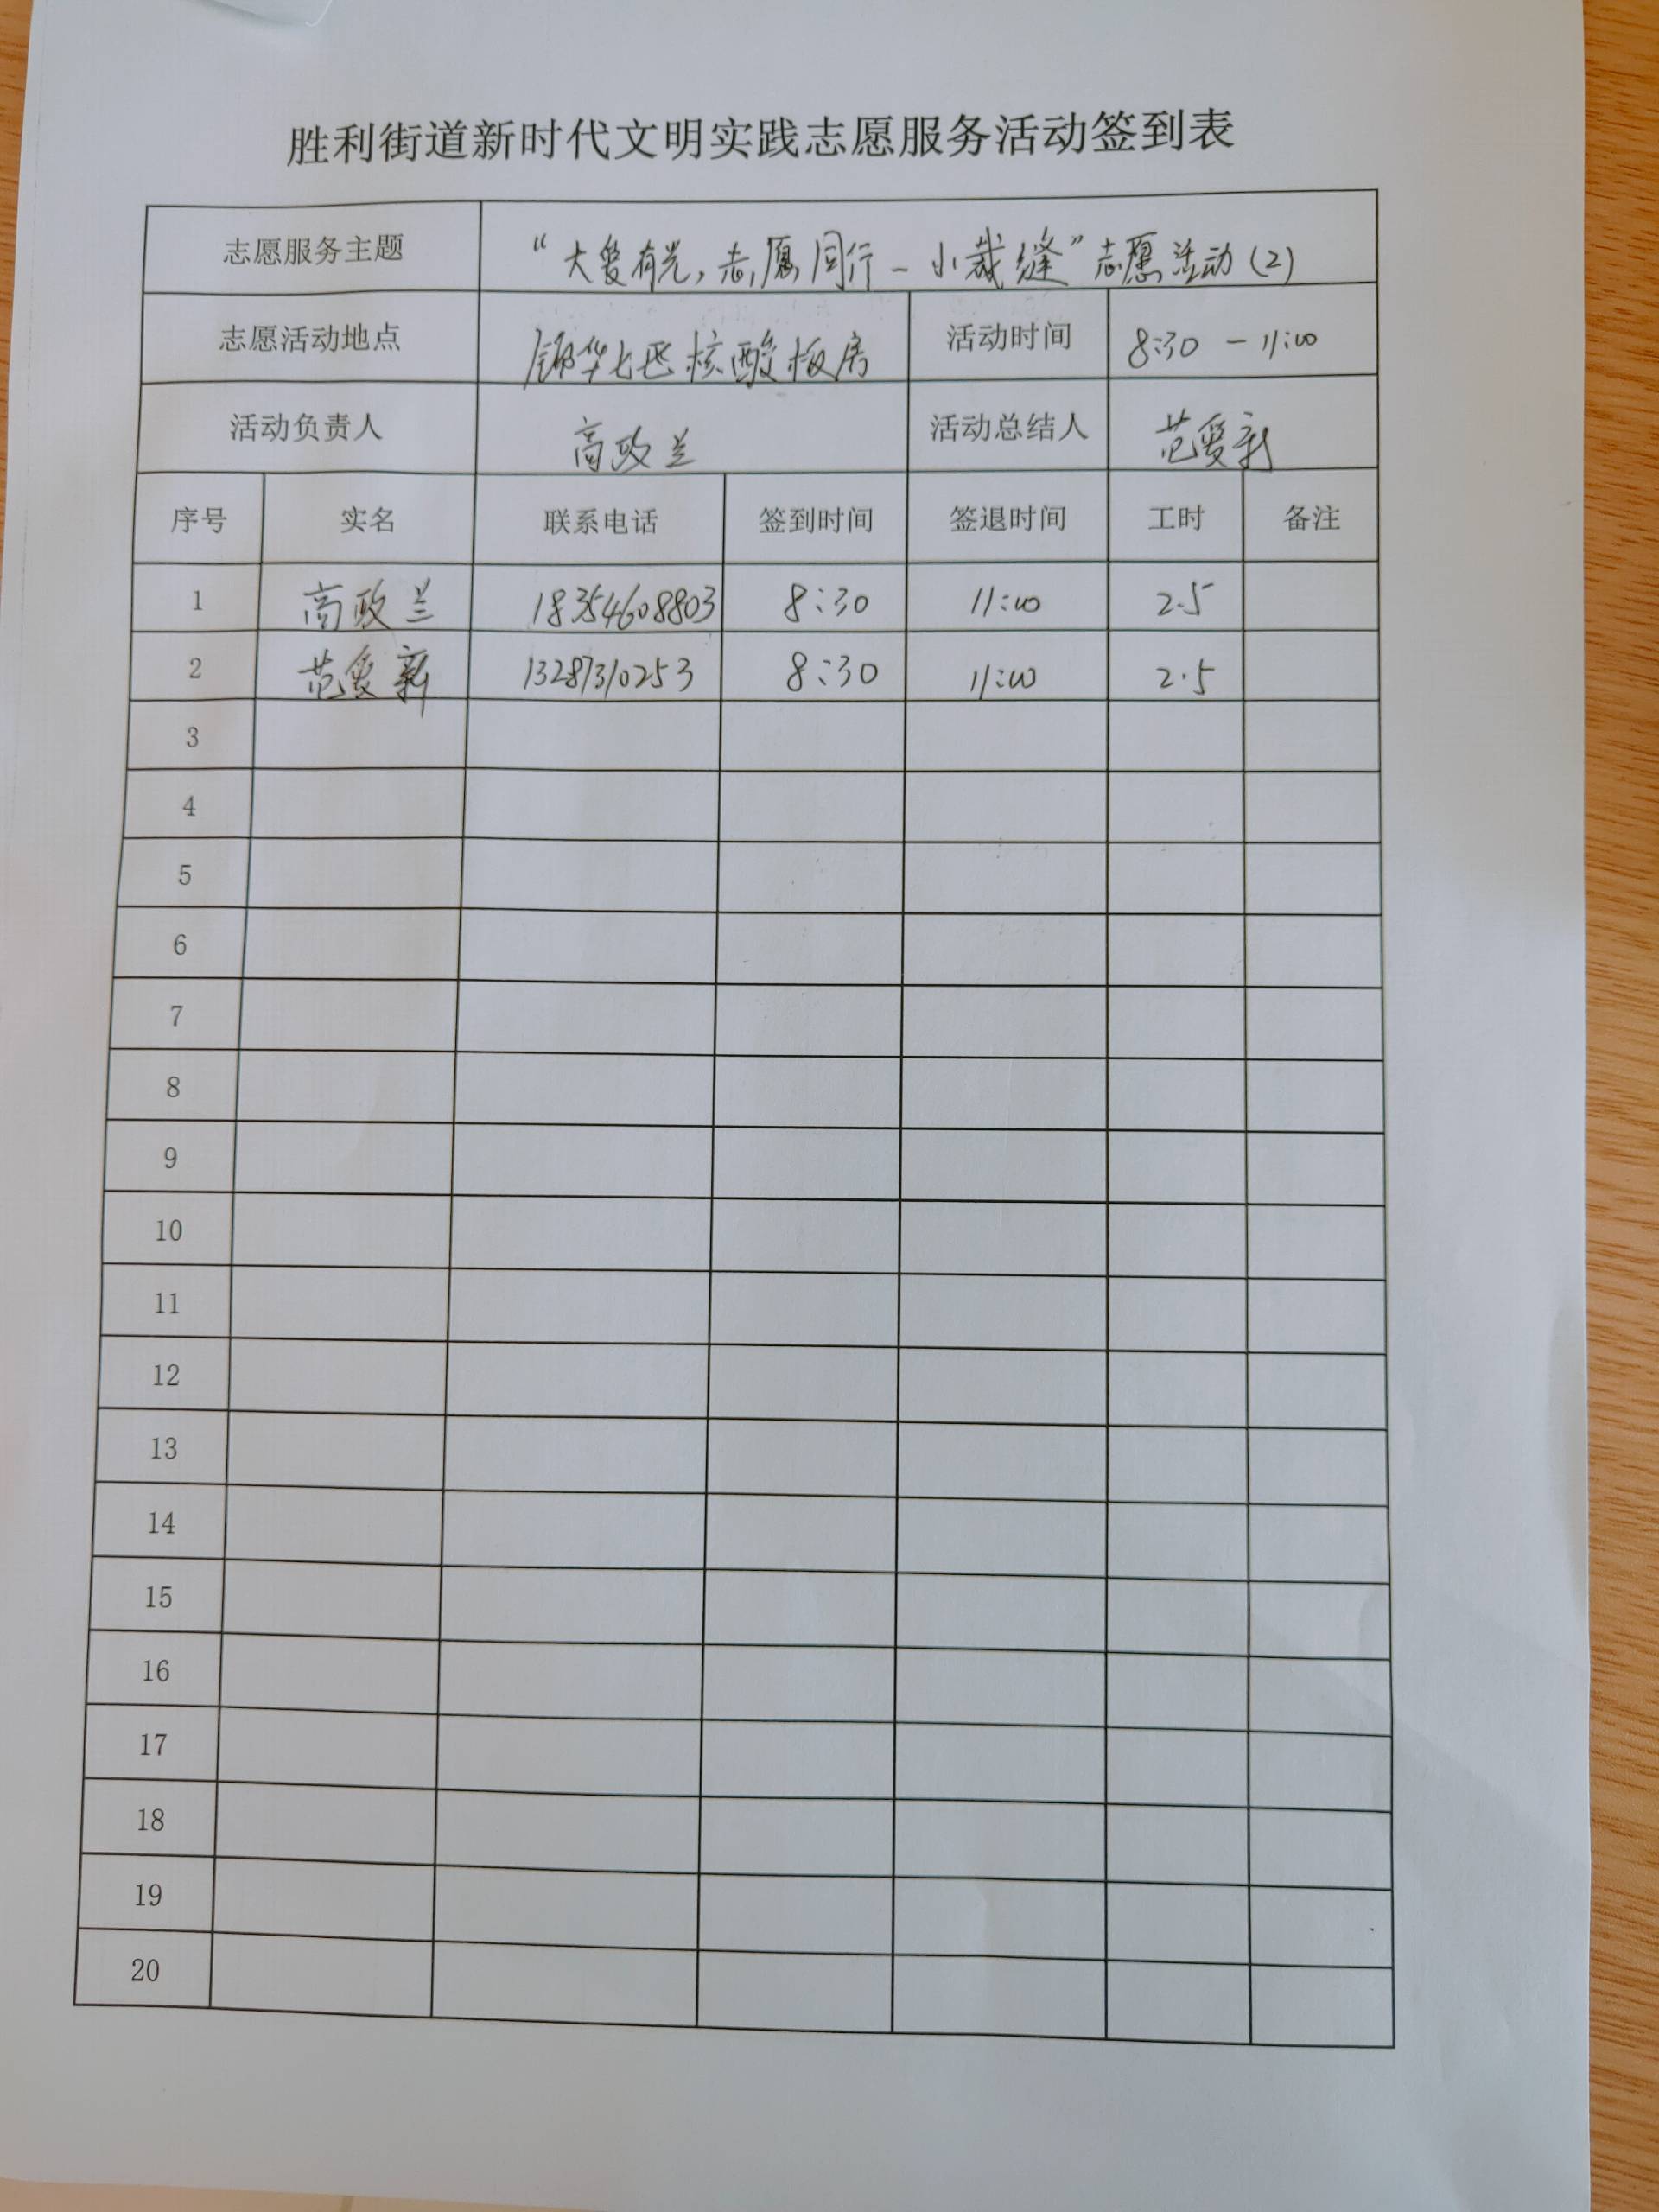 胜利街道新时代文明实践志愿服务活动签到表
志愿服务主题 “大爱有光，志愿同行－小裁缝”志愿活动(2)
志愿活动地点 锦华七区核酸板房 活动时间 8:30－11:00
活动负责人 高政兰 活动总结人 范爱新
序号 实名 联系电话 签到时间 签退时间 工时 备注
1 高政兰 18354608803 8:30 11:00 2.5
2 范爱新 13287310253 8:30 11:00 2.5
3
4
5
6
7
8
9
10
11
12
13
14
15
16
17
18
19
20